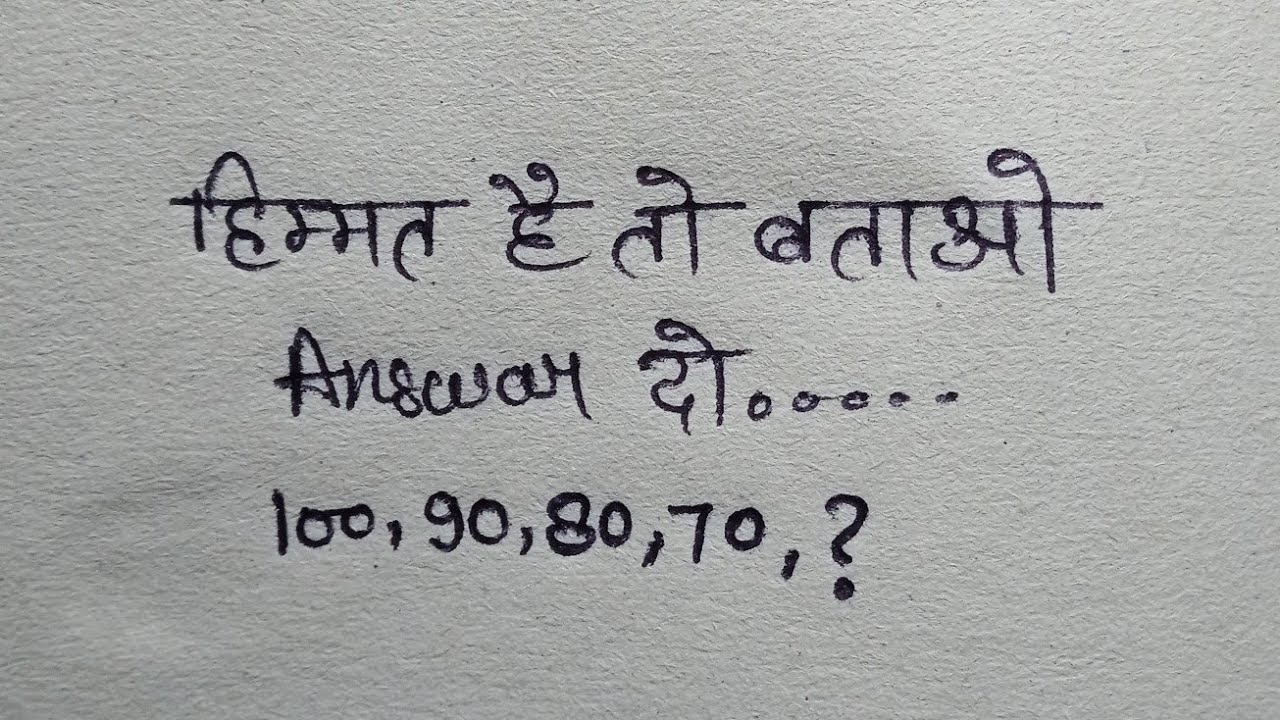 हिम्मत है तो बताओ
Answar दो......
100, 90, 80, 70, ?